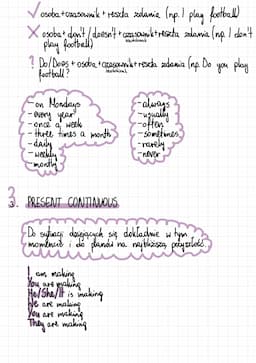 ✓ osoba + czasownik + reszta zdania (np. I play football)
✗ osoba + don't / doesn't + czasownik + reszta zdania (np. I don't
play football)
? Do/Does + osoba + czasownik + reszta zdania (np. Do you play
football?
- on Mondays
- every year
- once a week
- three times a month
- daily
- weekly
- monthly
- always
- usually
- often
- sometimes
- rarely
- never
3. PRESENT CONTINUOUS
Do sytuacji dziejących się dokładnie w tym
momencie i do planów na najbliższą przyszłość.
I am making
You are making
He/She/It is making
We are making
You are making
They are making